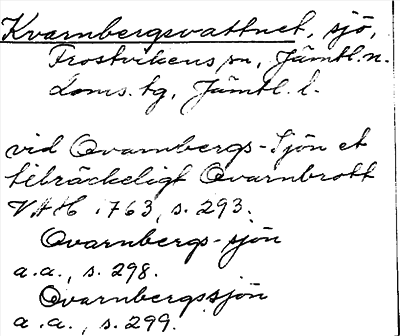 Kvarnbergsvattnet, sjö,
Frostvikens sn, Jämtl. n.
Doms. tg, Jämtl. l.
vid Qvarnbergs-Sjön et
tilräckeligt Qvarnbrott
VAH 1763, s. 293.
Qvarnbergs-sjön
a.a., s. 298.
Qvarnbergssjön
a.a., s. 299.